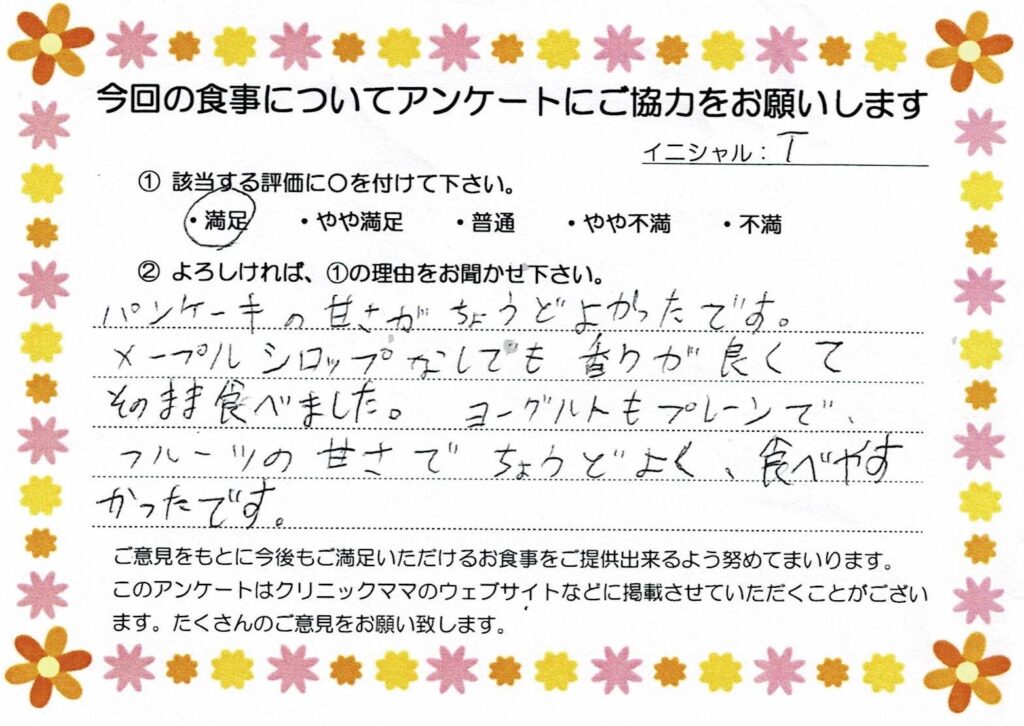 今回の食事についてアンケートにご協力をお願いします
イニシャル：T
① 該当する評価に〇を付けて下さい。
・満足 ・やや満足 ・普通 ・やや不満 ・不満
② よろしければ、①の理由をお聞かせ下さい。
パンケーキの甘さがちょうどよかったです。
メープルシロップなしでも香りが良くて
そのまま食べました。 ヨーグルトもプレーンで、
フルーツの甘さでちょうどよく、食べやす
かったです。
ご意見をもとに今後もご満足いただけるお食事をご提供出来るよう努めてまいります。
このアンケートはクリニックママのウェブサイトなどに掲載させていただくことがござい
ます。たくさんのご意見をお願い致します。